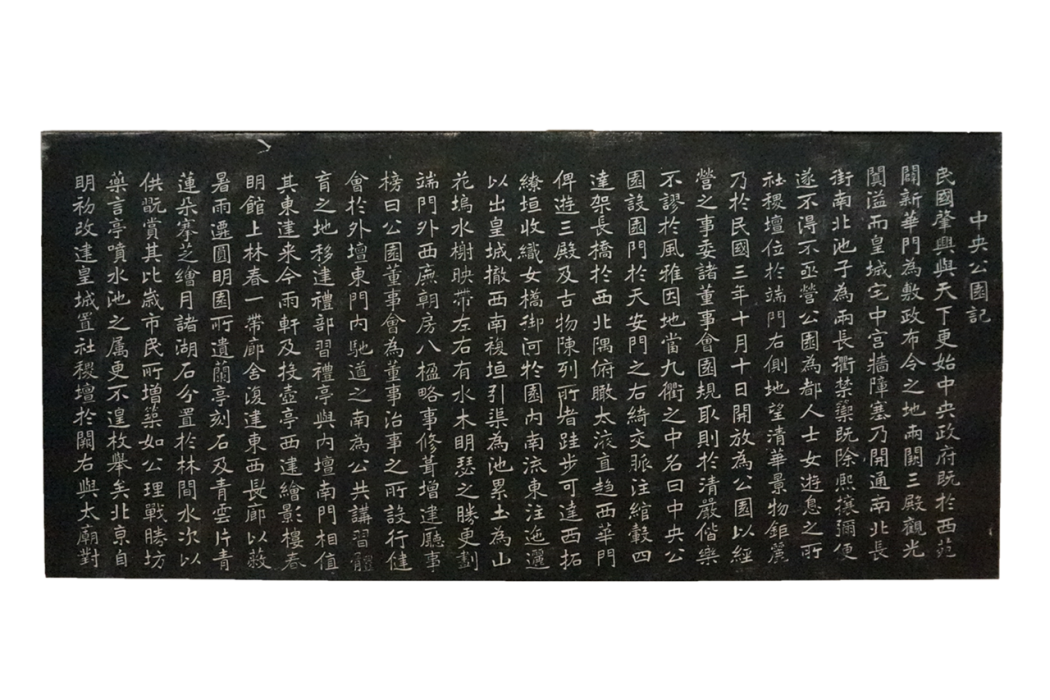 中央公園記
民國肇興與天下更始中央政府既於西苑
闢新華門為敷政布令之地兩闕三殿觀光
闐溢而皇城宅中宮牆障塞乃開通南北長
街南北池子為兩長衢禁籞既除熙攘彌便
遂不得不亟營公園為都人士女游息之所
社稷壇位於端門右側地望清華景物鉅麗
乃於民國三年十月十日開放為公園以經
營之事委諸董事會園規取則於清嚴偕樂
不謬於風雅因地當九衢之中名曰中央公
園設園門於天安門之右綺交脈注綰轂四
達架長橋於西北隅俯瞰太液直趨西華門
俾遊三殿及古物陳列所者跬步可達西拓
繚垣收織女橋御河於園內南流東注迤邐
以出皇城撤西南複垣引渠為池累土為山
花塢水榭映帶左右有水木明瑟之勝更劃
端門外西廡朝房八楹略事修葺增建廳事
榜曰公園董事會為董事治事之所設行健
會於外壇東門內馳道之南為公共講習體
育之地移建禮部習禮亭與內壇南門相值
其東建來今雨軒及投壺亭西建繪影樓春
明館上林春一帶廊舍復建東西長廊以蔽
暑雨遷圓明園所遺蘭亭刻石及青雲片青
蓮朵搴芝繪月諸湖石分置於林間水次以
供翫賞其比歲市民所增築如公理戰勝坊
藥言亭噴水池之屬更不遑枚舉矣北京自
明初改建皇城置社稷壇於闕右與太廟對